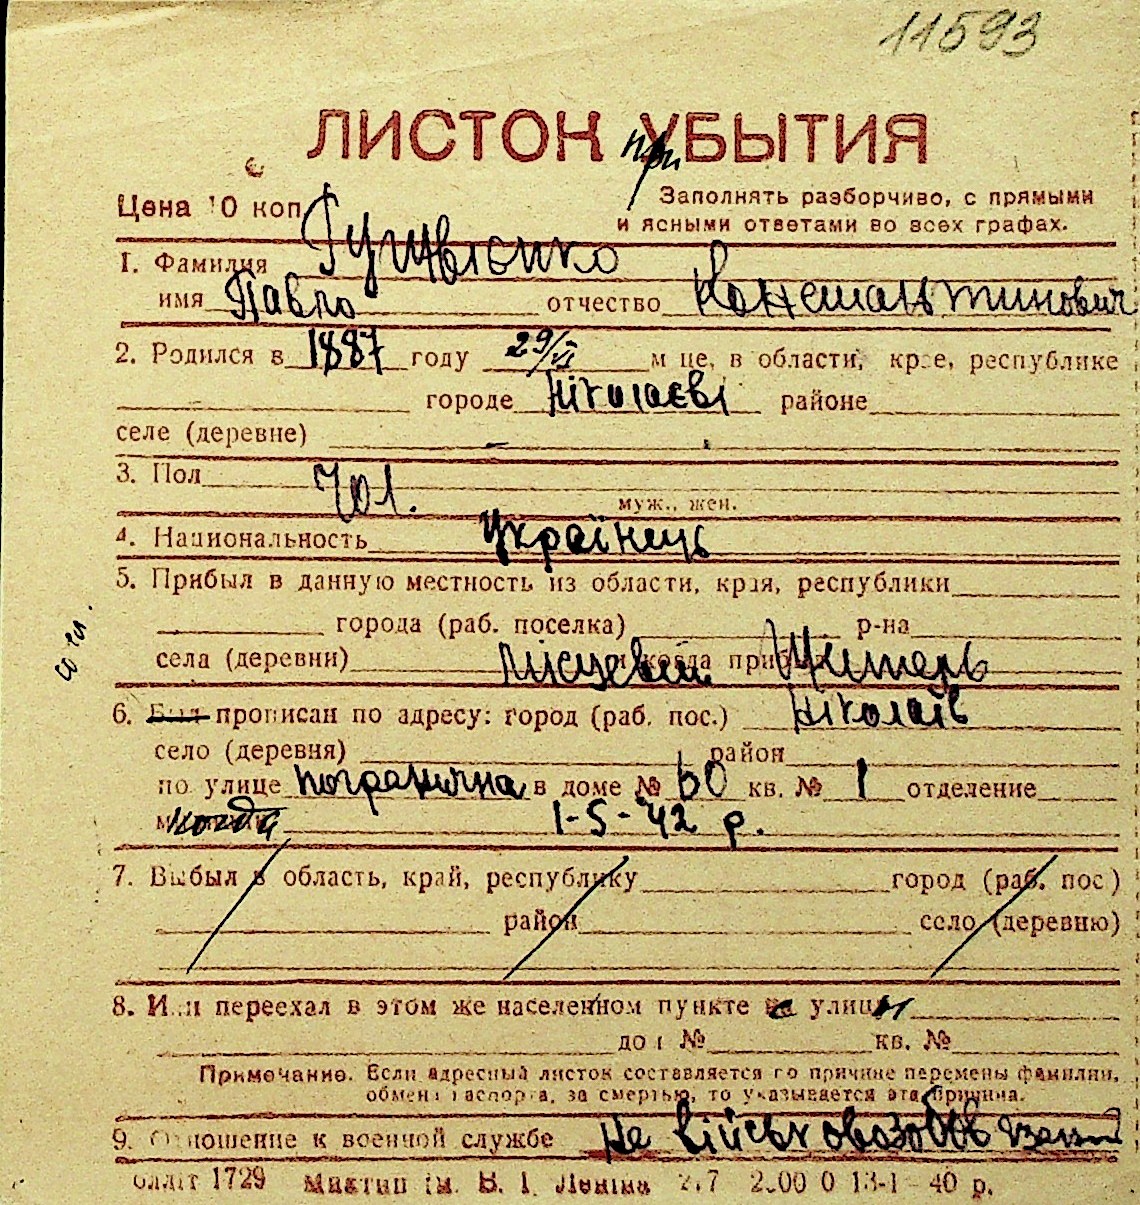 11593
ЛИСТОК при УБЫТИЯ
Цена 10 коп
Заполнять разборчиво, с прямыми
и ясными ответами во всех графах.
1. Фамилия
имя Павло отчество Константинович
2. Родился в 1887 году 29/VI м це, в области, крае, республике
городе Ніколаєві районе
селе (деревне)
3. Пол Чол.
муж., жен.
4. Национальность Українець
5. Прибыл в данную местность из области, края, республики
города (раб. поселка) р-на
села (деревни) місцевий и когда прибыл Житель
6. Был прописан по адресу: город (раб. пос.) Ніколаїв
село (деревня) район
по улице Погранична в доме № 60 кв. № 1 отделение
когда 1-5-42 р.
7. Выбыл в область, край, республику город (раб. пос)
район село (деревню)
8. Или переехал в этом же населенном пункте с улицы
дом № кв. №
Примечание. Если адресный листок составляется по причине перемены фамилии,
обмена паспорта, за смертью, то указывается эта причина.
9. Отношение к военной службе Не військовозобов'язаний
1729 В. І. Леніна 40 р.